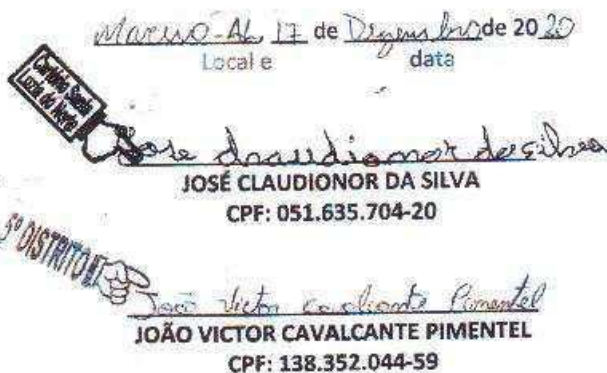 Maceió-AL, 17 de Dezembro de 2020
Local e data
Cartório Santa
Luzia do Norte
Jose Claudionor da Silva
JOSÉ CLAUDIONOR DA SILVA
CPF: 051.635.704-20
5º DISTRITO
João Victor Cavalcante Pimentel
JOÃO VICTOR CAVALCANTE PIMENTEL
CPF: 138.352.044-59